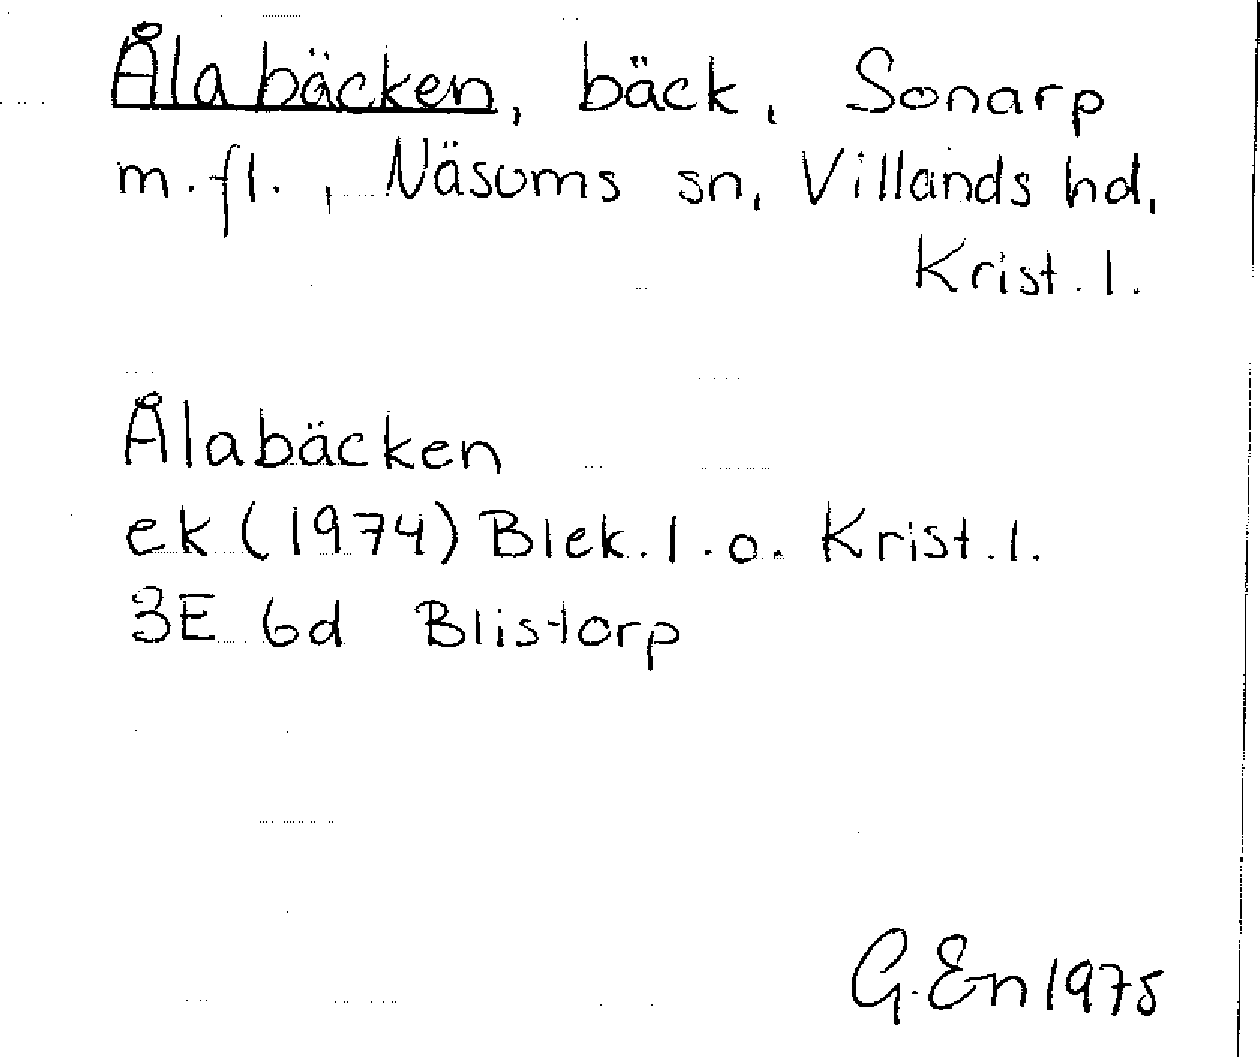 Ålabäcken, bäck, Sonarp
m.fl., Näsums sn, Villands hd,
Krist.l.
Ålabäcken
ek (1974) Blek.l.o. Krist.l.
3E 6d Blistorp
G.En 1975